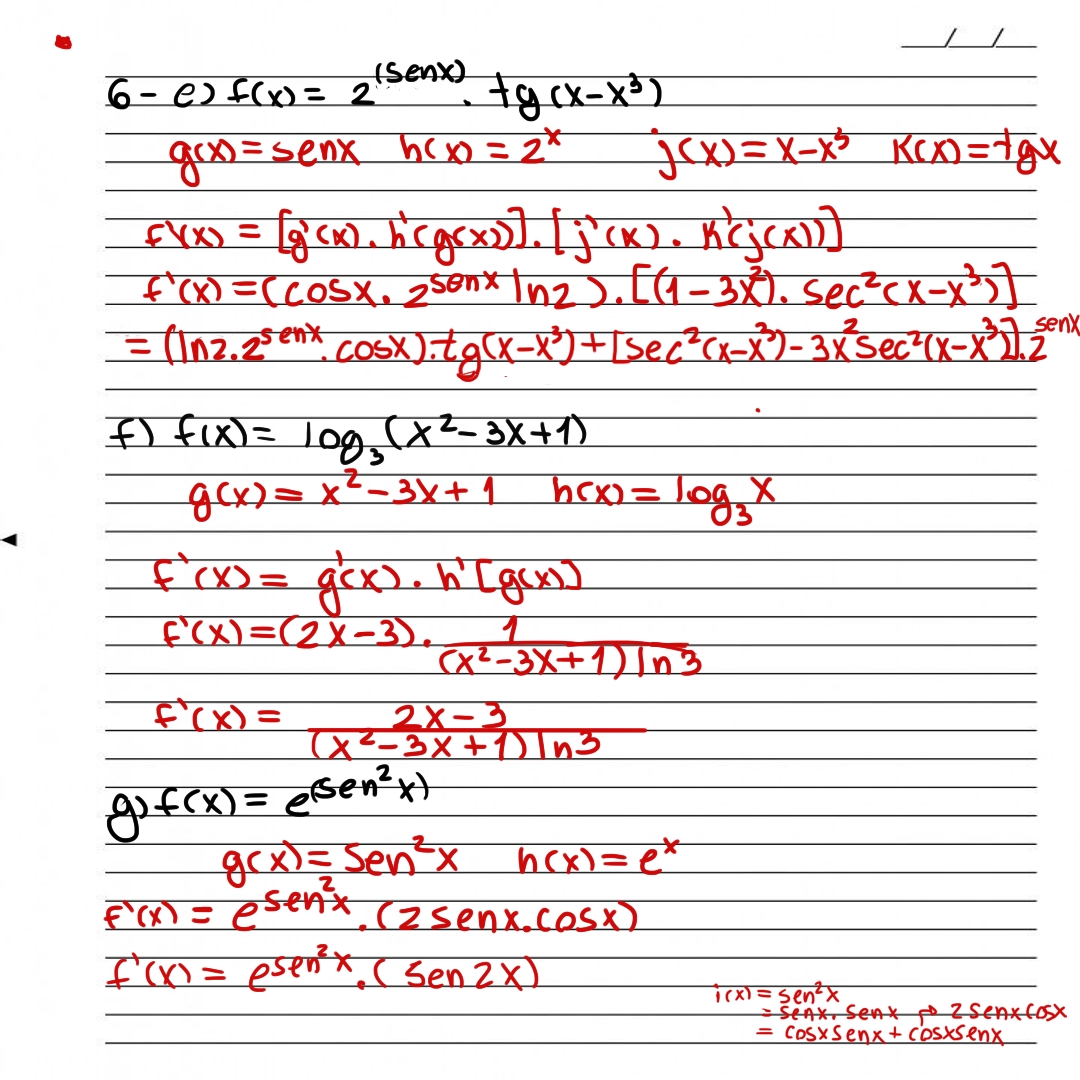 6- e) f(x) = 2^(senx) . tg(x-x³)
g(x) = senx h(x) = 2^x j(x) = x-x³ K(x) = tgx
f'(x) = [g'(x) . h'(g(x))] . [j'(x) . K'(j(x))]
f'(x) = (cosx . 2^senx ln2) . [(1-3x²) . sec²(x-x³)]
= (ln2.2^senx.cosx).tg(x-x³)+[sec²(x-x³)-3x²sec²(x-x³)].2^senx
f) f(x) = log₃(x²-3x+1)
g(x) = x²-3x+1 h(x) = log₃x
f'(x) = g'(x) . h'[g(x)]
f'(x) = (2x-3) . 1
(x²-3x+1) ln3
f'(x) = 2x-3
(x²-3x+1) ln3
g) f(x) = e^(sen²x)
g(x) = Sen²x h(x) = e^x
f'(x) = e^sen²x . (2senx.cosx)
f'(x) = e^sen²x . (Sen2x)
i(x) = sen²x
= senx. senx ↱ 2senxcosx
= cosxsenx + cosxsenx